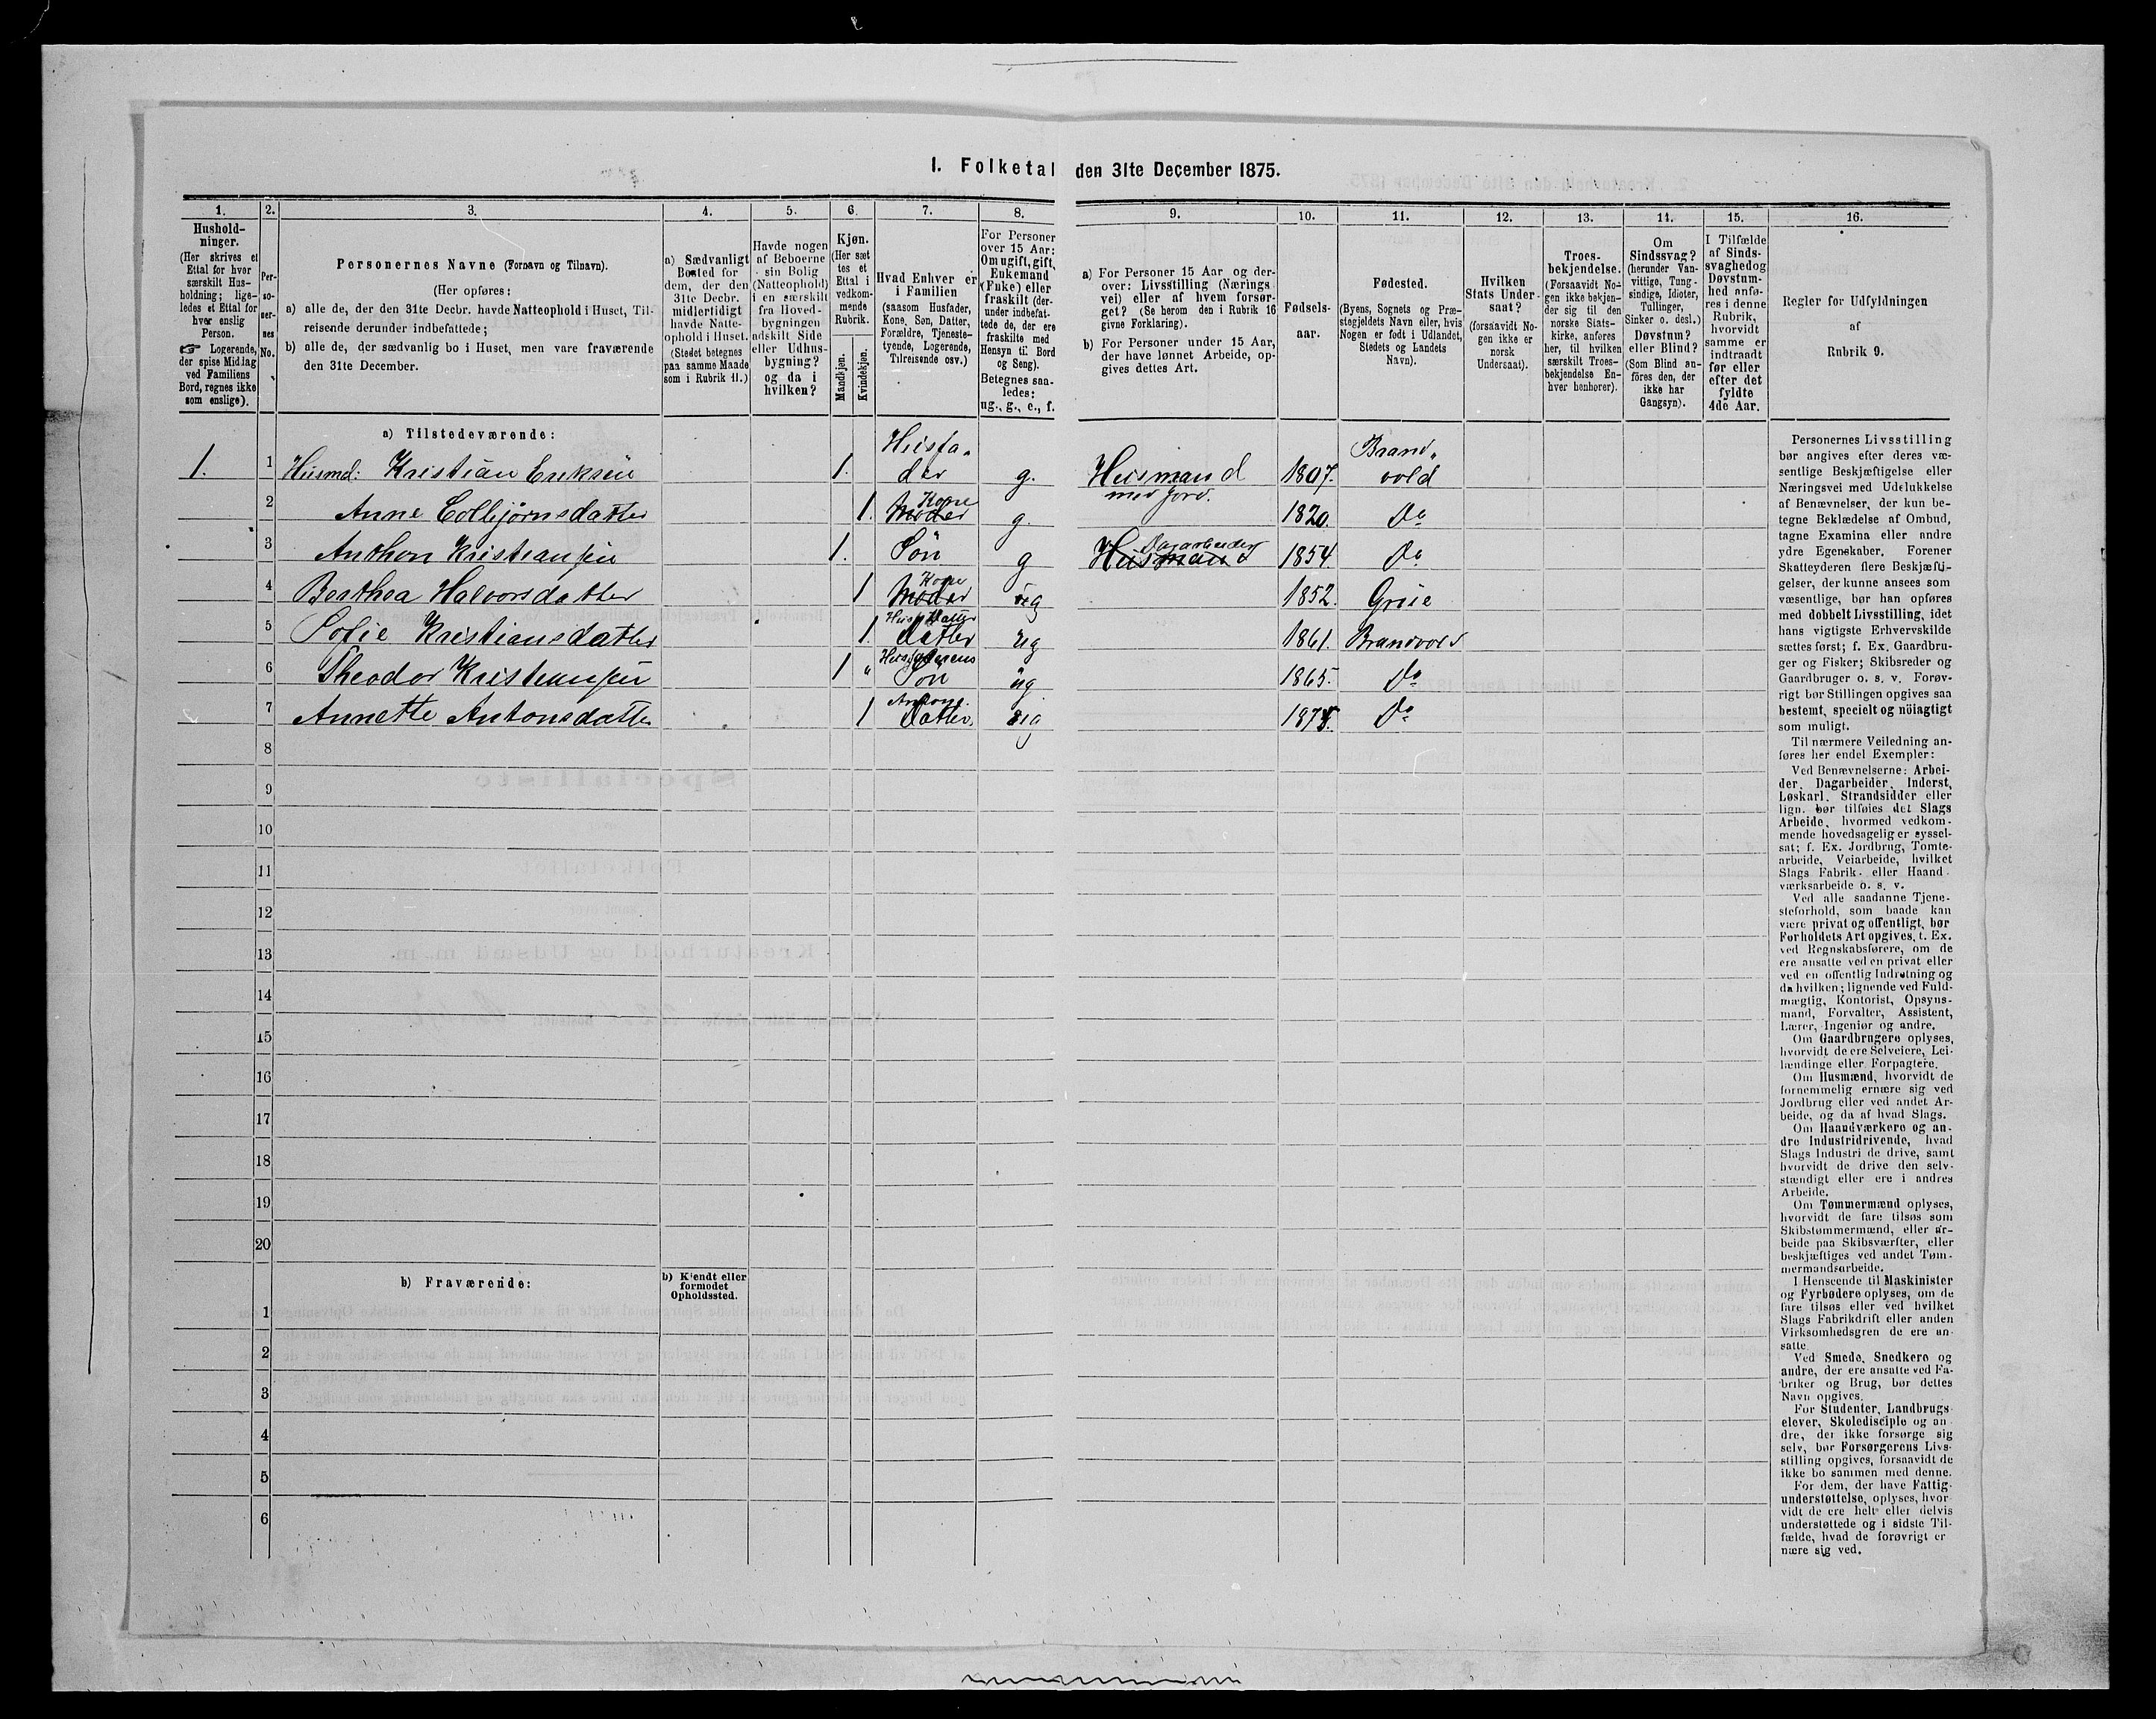 I. Folketal den 31te December 1875.
1.
Hushold-
ninger.
(Her skrives et
Ettal for hvor
særskilt Hus-
holdning; lige-
ledes et Ettal for
hver enslig
Person.
☞ Logerende,
der spise Middag
ved Familiens
Bord, regnes ikke
som enslige).
2.
Per-
so-
ner-
nes
No.
3.
Personernes Navne (Fornavn og Tilnavn).
(Her opføres:
a) alle de, der den 31te Decbr. havde Natteophold i Huset, Til-
reisende derunder indbefattede;
b) alle de, der sædvanlig bo i Huset, men vare fraværende
den 31te December.
4.
a) Sædvanligt
Bosted for
dem, der den
31te Decbr.
midlertidigt
havde Natte-
ophold i Huset.
(Stedet betegnes
paa samme Maade
som i Rubrik 11.)
5.
Havde nogen
af Beboerne
sin Bolig
(Natteophold)
i en særskilt
fra Hoved-
bygningen
adskilt Side
eller Udhus-
bygning?
og da i
hvilken?
6.
Kjøn.
(Her sæt
tes et
Ettal i
vedkom-
mende
Rubrik.
Mandkjøn.
Kvindekjøn.
7.
Hvad Enhver er
i Familien
(saasom Husfader,
Kone, Søn, Datter,
Forældre, Tjeneste-
tyende, Logerende,
Tilreisende osv.)
8.
For Personer
over 15 Aar:
Om ugift, gift,
Enkemand
(Enke) eller
fraskilt (der-
under indbefat-
tede de, der ere
fraskilte med
Hensyn til Bord
og Seng).
Betegnes saa-
ledes:
ug., g., e., f.
9.
a) For Personer 15 Aar og der-
over: Livsstilling (Nærings
vei) eller af hvem forsør-
get? (Se herom den i Rubrik 16
givne Forklaring).
b) For Personer under 15 Aar,
der have lønnet Arbeide, op-
gives dettes Art.
10.
Fødsels-
aar.
11.
Fødested.
(Byens, Sognets og Præ-
stegjeldets Navn eller, hvis
Nogen er født i Udlandet,
Stedets og Landets
Navn).
12.
Hvilken
Stats Under-
saat?
(forsaavidt No-
gen ikke er
norsk
Undersaat).
13.
Troes-
bekjendelse.
(Forsaavidt No-
gen ikke bekjen-
der sig til den
norske Stats-
kirke, anføres
her, til hvilken
særskilt Troes-
bekjendelse En-
hver henhører).
14.
Om
Sindssvag?
(herunder Van-
vittige, Tung-
sindige, Idioter,
Tullinger,
Sinker o. desl.)
Døvstum?
eller Blind?
(Som Blind an-
føres den, der
ikke har
Gangsyn).
15.
I Tilfælde
af Sinds-
svaghed og
Døvstum-
hed anfø-
res i denne
Rubrik,
hvorvidt
samme er
indtraadt
før eller
efter det
fyldte
4de Aar.
16.
Regler for Udfyldningen
af
Rubrik 9.
a) Tilstedeværende:
1. 1 Husmd: Kristian Eriksen 1. Husfa-
der g. Husmand
med Jord. 1807. Brand-
vold
2 Anne Colbjørnsdatter 1. Moder Kone g. 1820. Do
3 Anthon Kristiansen 1. Søn g Husmand Dagarbeider 1854. Do
4 Berthea Halvorsdatter 1 Moder Kone ug 1852. Grue
5 Sofie Kristiansdatter 1. Datter ug 1861. Brandvold
6 Theodor Kristiansen 1 " Husfaderens
Søn ug 1865. Do
7 Annette Antonsdatter 1 Antons
Datter. ug Do
8
9
10
11
12
13
14
15
16
17
18
19
20
b) Fraværende:
b) Kjendt eller
formodet
Opholdssted.
1
2
3
4
5
6
Personernes Livsstilling
bør angives efter deres væ-
sentlige Beskjæftigelse eller
Næringsvei med Udelukkelse
af Benævnelser, der kun be-
tegne Beklædelse af Ombud,
tagne Examina eller andre
ydre Egenskaber. Forener
Skatteyderen flere Beskjæfti-
gelser, der kunne ansees som
væsentlige, bør han opføres
med dobbelt Livsstilling, idet
hans vigtigste Erhvervskilde
sættes først; f. Ex. Gaardbru-
ger og Fisker; Skibsreder og
Gaardbruger o. s. v. Forøv-
rigt bør Stillingen opgives saa
bestemt, specielt og nöiagtigt
som muligt.
Til nærmere Veiledning an-
føres her endel Exempler:
Ved Benævnelserne: Arbei-
der, Dagarbeider, Inderst,
Løskarl, Strandsidder eller
lign. bør tilføies det Slags
Arbeide, hvormed vedkom-
mende hovedsagelig er syssel-
sat; f. Ex. Jordbrug, Tomte-
arbeide, Veiarbeide, hvilket
Slags Fabrik- eller Haand-
værksarbeide o. s. v.
Ved alle saadanne Tjene-
steforhold, som baade kan
være privat og offentligt, bør
Forholdets Art opgives, t. Ex.
ved Regnskabsførere, om de
ere ansatte ved en privat eller
ved en offentlig Indretning og
da hvilken; lignende ved Fuld-
mægtig, Kontorist, Opsyns-
mand, Forvalter, Assistent,
Lærer, Ingeniør og andre.
Om Gaardbrugere oplyses,
hvorvidt de ere Selveiere, Lei-
lændinge eller Forpagtere.
Om Husmænd, hvorvidt de
fornemmelig ernære sig ved
Jordbrug eller ved andet Ar-
beide, og da af hvad Slags.
Om Haandværkere og an-
dre Industridrivende, hvad
Slags Industri de drive, samt
hvorvidt de drive den selv-
stændigt eller ere i andres
Arbeide.
Om Tømmermænd oplyses,
hvorvidt de fare tilsøs som
Skibstømmermænd, eller ar-
beide paa Skibsværfter, eller
beskjæftiges ved andet Tøm-
mermandsarbeide.
I Henseende til Maskinister
og Fyrbødere oplyses, om de
fare tilsøs eller ved hvilket
Slags Fabrikdrift eller anden
Virksomhedsgren de ere an-
satte.
Ved Smede, Snedkere og
andre, der ere ansatte ved Fa-
briker og Brug, bør dettes
Navn opgives.
For Studenter, Landbrugs-
elever, Skoledisciple og an-
dre, der ikke forsørge sig
selv, bør Forsørgerens Livs-
stilling opgives, forsaavidt de
ikke bo sammen med denne.
For dem, der have Fattig-
understøttelse, oplyses, hvor-
vidt de ere helt eller delvis
understøttede og i sidste Til-
fælde, hvad de forøvrigt er-
nære sig ved.